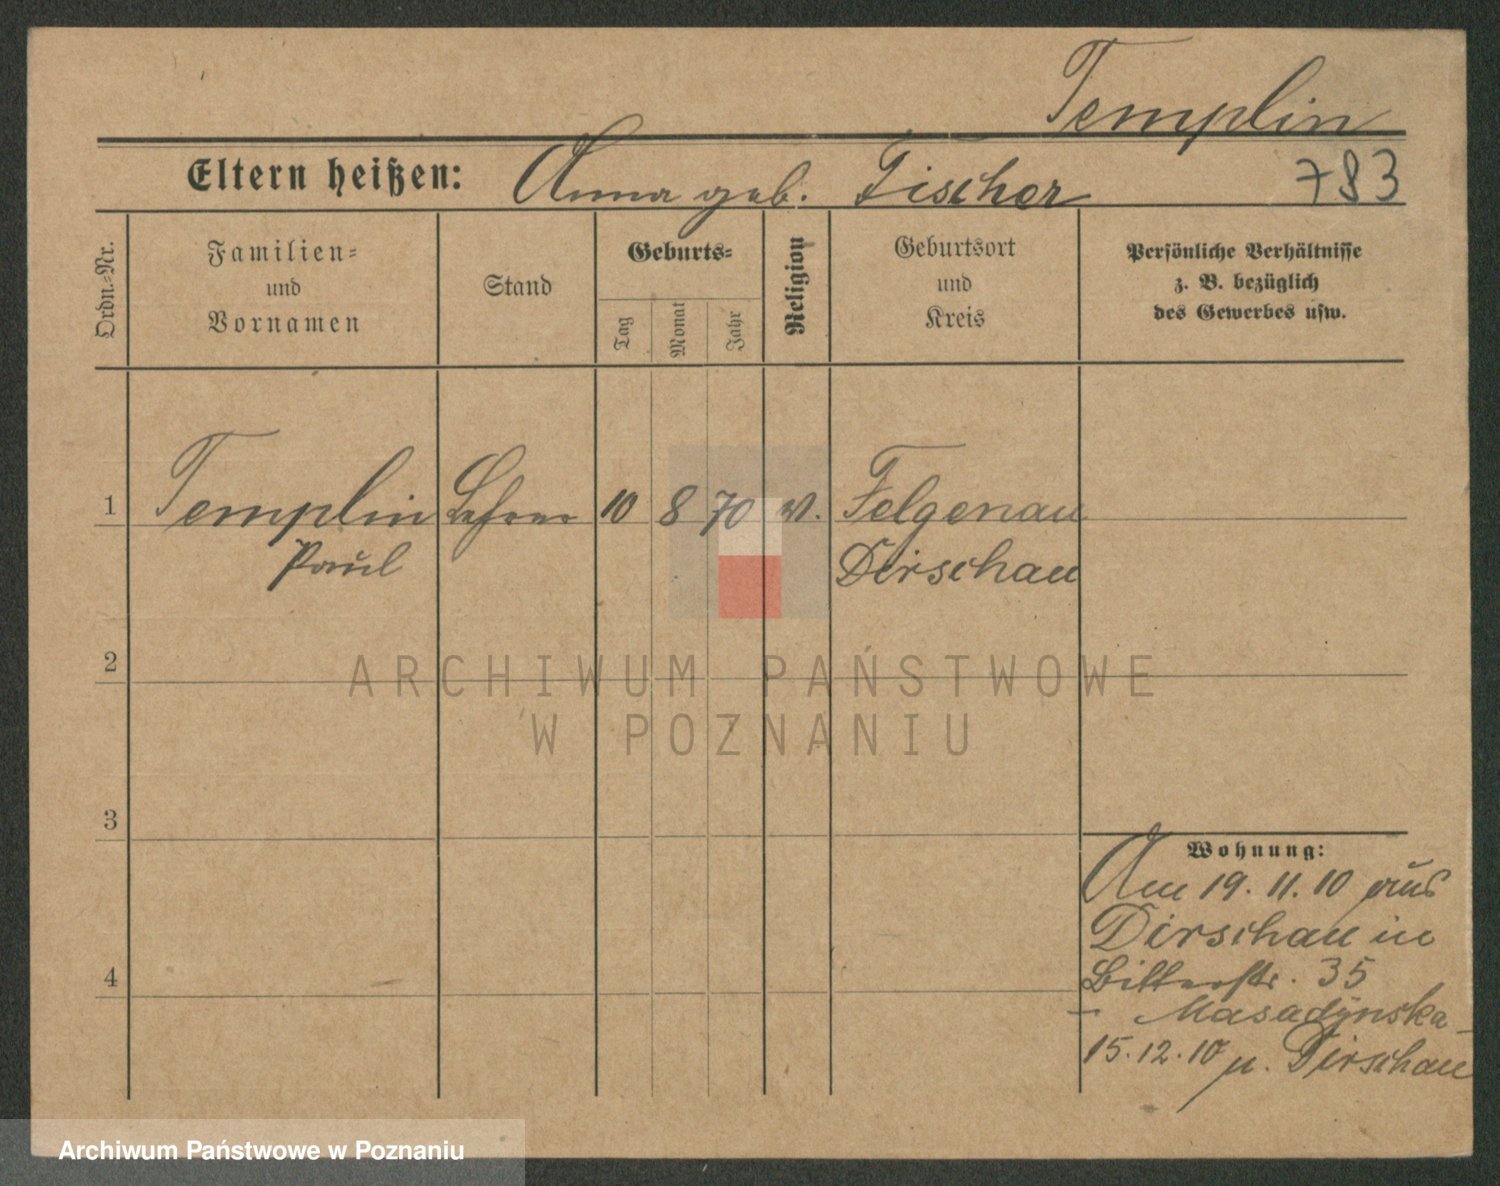 Templin
Eltern heißen: Anna geb. Fischer 783
Ordn.=Nr.
Familien=
und
Vornamen
Stand
Geburts=
Tag
Monat
Jahr
Religion
Geburtsort
und
Kreis
Persönliche Verhältnisse
z. B. bezüglich
des Gewerbes usw.
1 Templin Lehrer 10 8 70 Felgenau
Paul Dirschau
2
3
4
Wohnung:
Am 19. 11. 10 aus
Dirschau in
35
15. 12. 10 n. Dirschau
ARCHIWUM PAŃSTWOWE
W POZNANIU
Archiwum Państwowe w Poznaniu